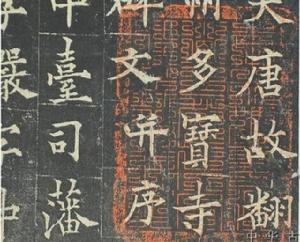 大唐故翻
州多寶寺
碑文并序
中臺司藩
李儼字仲